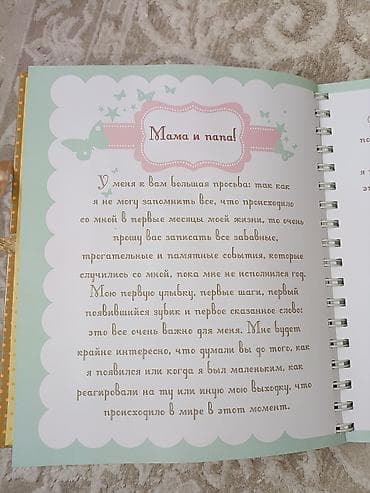 Мама и папа!
У меня к вам большая просьба: так как
я не могу запомнить все, что происходило
со мной в первые месяцы моей жизни, то очень
прошу вас записать все забавные,
трогательные и памятные события, которые
случились со мной, пока мне не исполнился год.
Мою первую улыбку, первые шаги, первый
появившийся зубик и первое сказанное слово:
это все очень важно для меня. Мне будет
крайне интересно, что думали вы до того, как
я появился или когда я был маленьким, как
реагировали на ту или иную мою выходку, что
происходило в мире в этот момент.